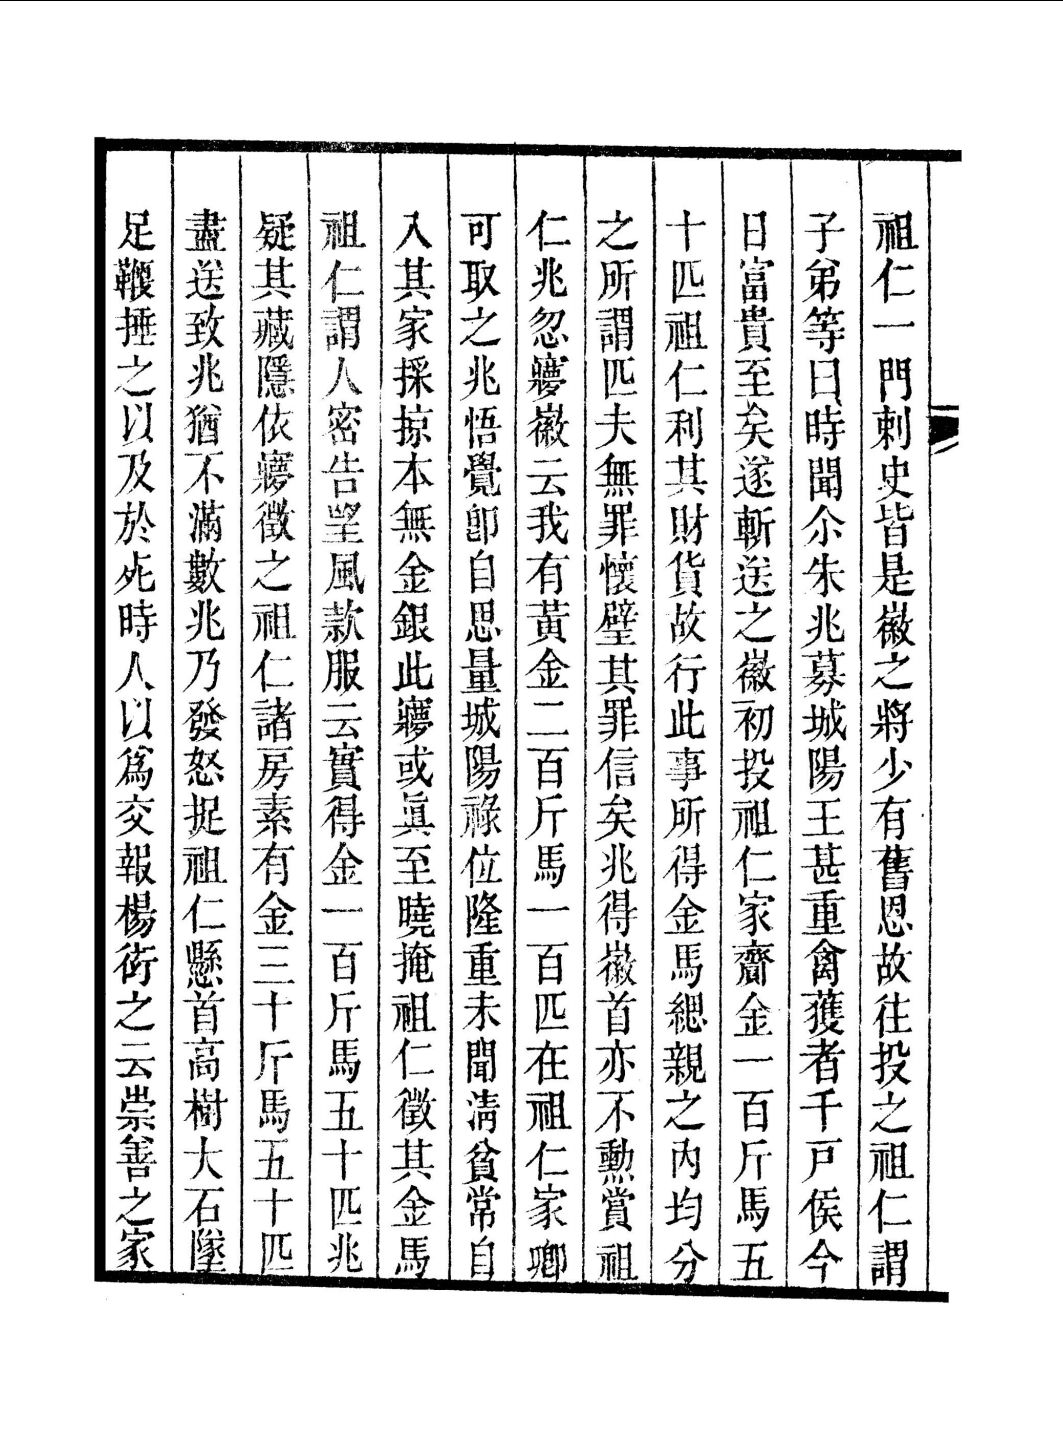 祖仁一門刺史皆是徽之將少有舊恩故往投之祖仁謂
子弟等曰時聞尒朱兆募城陽王甚重禽獲者千戸侯今
日富貴至矣遂斬送之徽初投祖仁家齎金一百斤馬五
十匹祖仁利其財貨故行此事所得金馬緦親之內均分
之所謂匹夫無罪懷璧其罪信矣兆得徽首亦不勲賞祖
仁兆忽㝱徽云我有黃金二百斤馬一百匹在祖仁家卿
可取之兆悟覺卽自思量城陽祿位隆重未聞清貧常自
入其家採掠本無金銀此㝱或眞至曉掩祖仁徵其金馬
祖仁謂人密告望風款服云實得金一百斤馬五十匹兆
疑其藏隱依㝱徵之祖仁諸房素有金三十斤馬五十匹
盡送致兆猶不滿數兆乃發怒捉祖仁懸首高樹大石墜
足鞭捶之以及於死時人以爲交報楊衒之云崇善之家